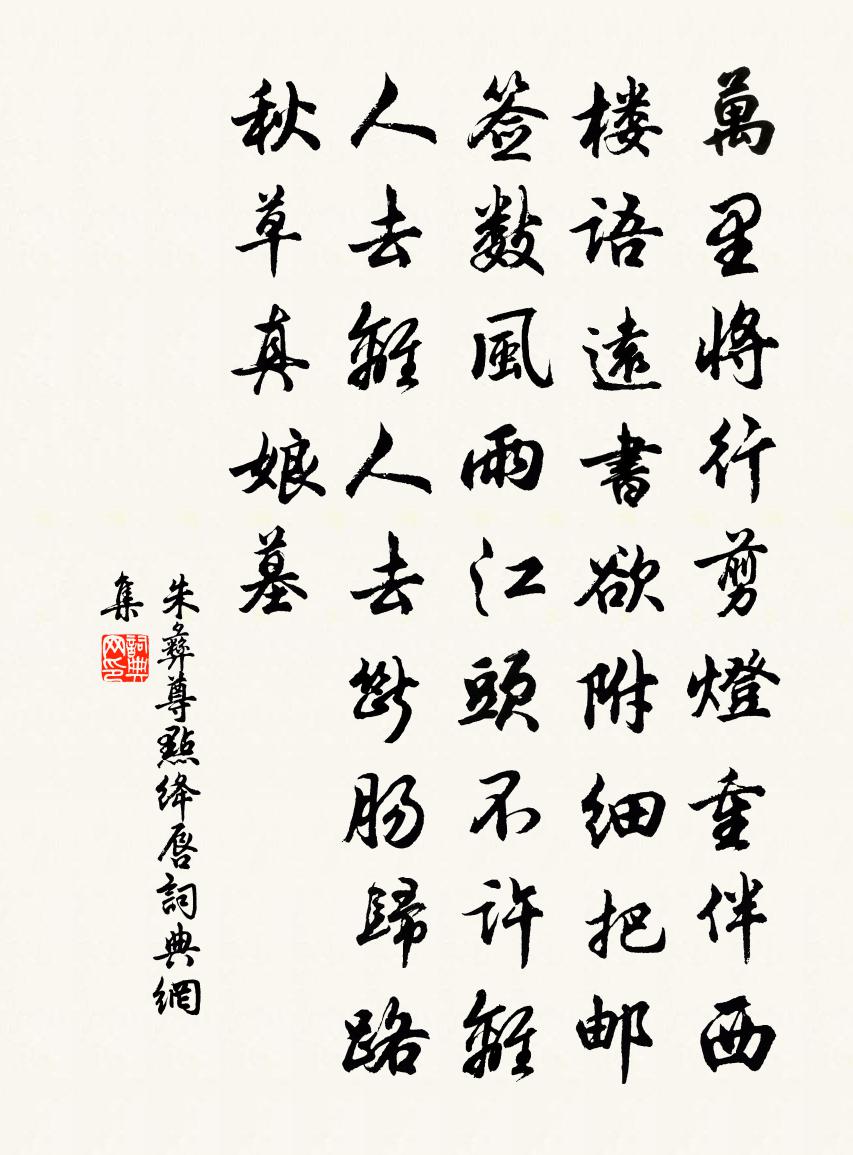 萬里將行剪燈重伴西
楼語遠書欲附細把邮
签數風雨江頭不許離
人去離人去斷肠歸路
秋草真娘墓
朱彝尊點絳唇詞典網
集
詞典
网印